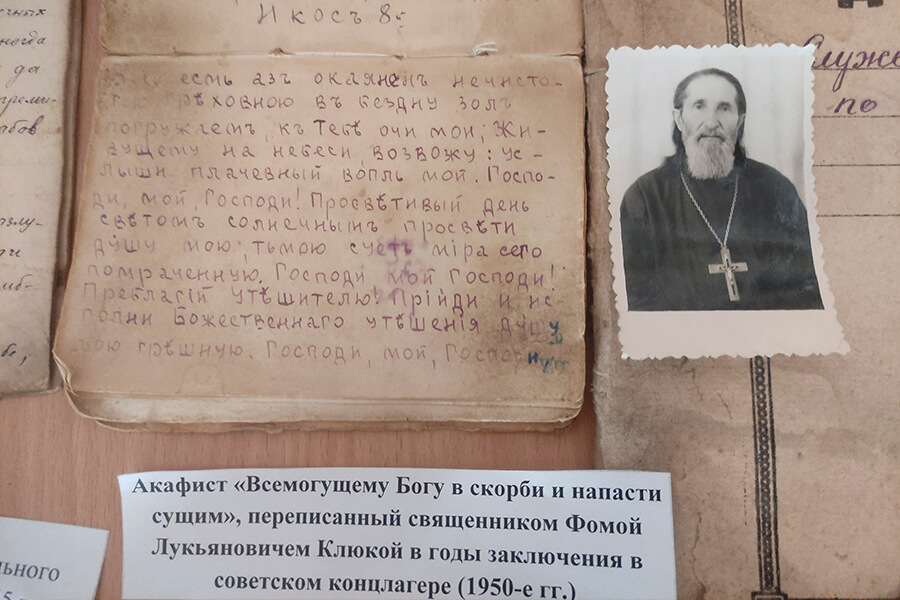 Икосъ 8й
есть азъ окаяненъ нечисто-
тою грѣховною въ бездну золъ
погружаемъ, къ Тебѣ очи мои, Жи-
вущему на небеси, возвожу: ус-
лыши плачевный вопль мой. Госпо-
ди, мой, Господи! Просвѣтивый день
свѣтомъ солнечнымъ просвѣти
душу мою, тьмою суетъ мiра сего
помраченную. Господи мой Господи!
Преблагiй утѣшителю! Прiйди и ис-
полни Божественнаго утѣшенiя душу
мою грѣшную. Господи, мой, Господи
иногда
да
греми-
рабов
по
Акафист «Всемогущему Богу в скорби и напасти
сущим», переписанный священником Фомой
Лукьяновичем Клюкой в годы заключения в
советском концлагере (1950-е гг.)